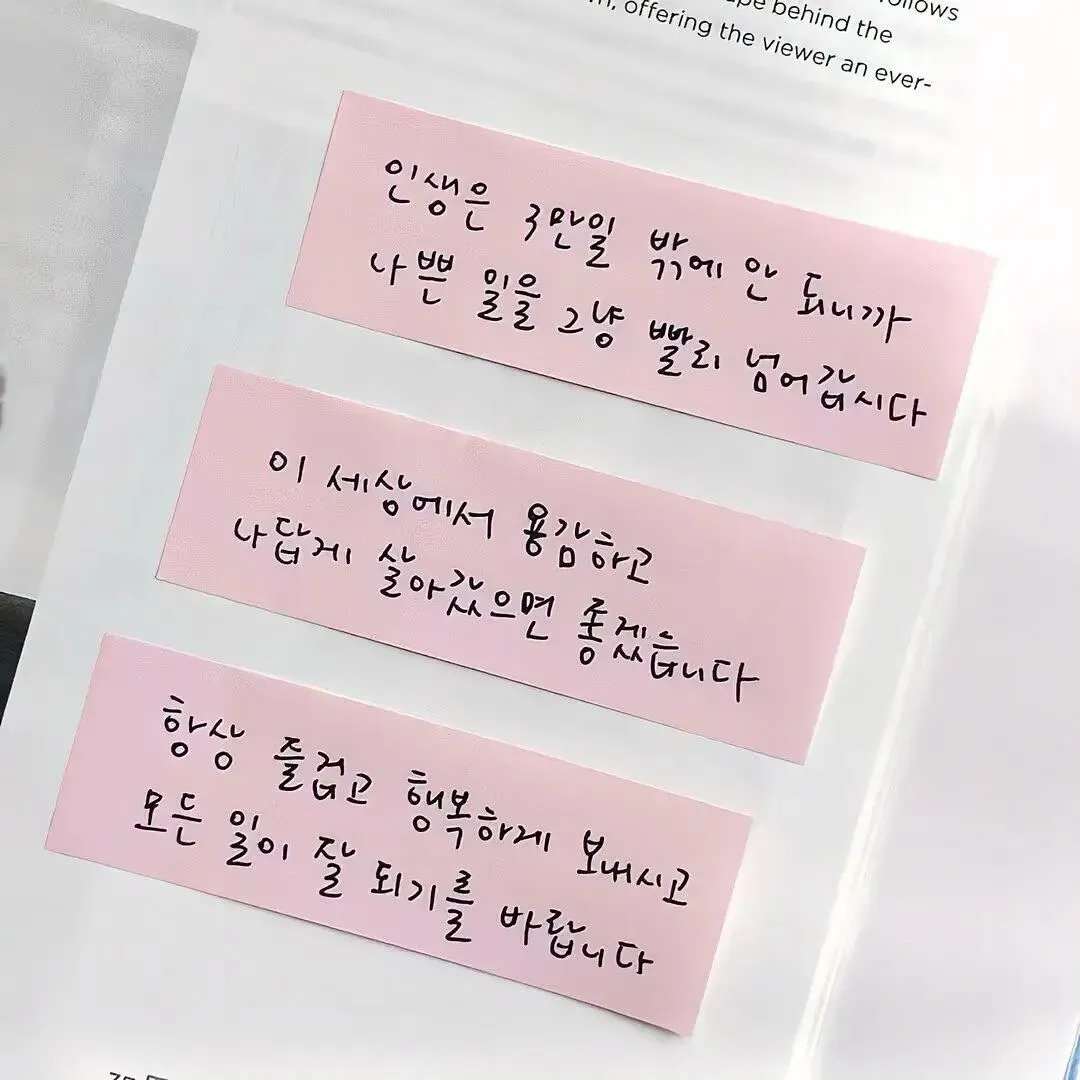 ollows
behind the
offering the viewer an ever-
인생은 3만일 밖에 안 되니까
나쁜 일을 그냥 빨리 넘어갑시다
이 세상에서 용감하고
나답게 살아갔으면 좋겠습니다
항상 즐겁고 행복하게 보내시고
모든 일이 잘 되기를 바랍니다